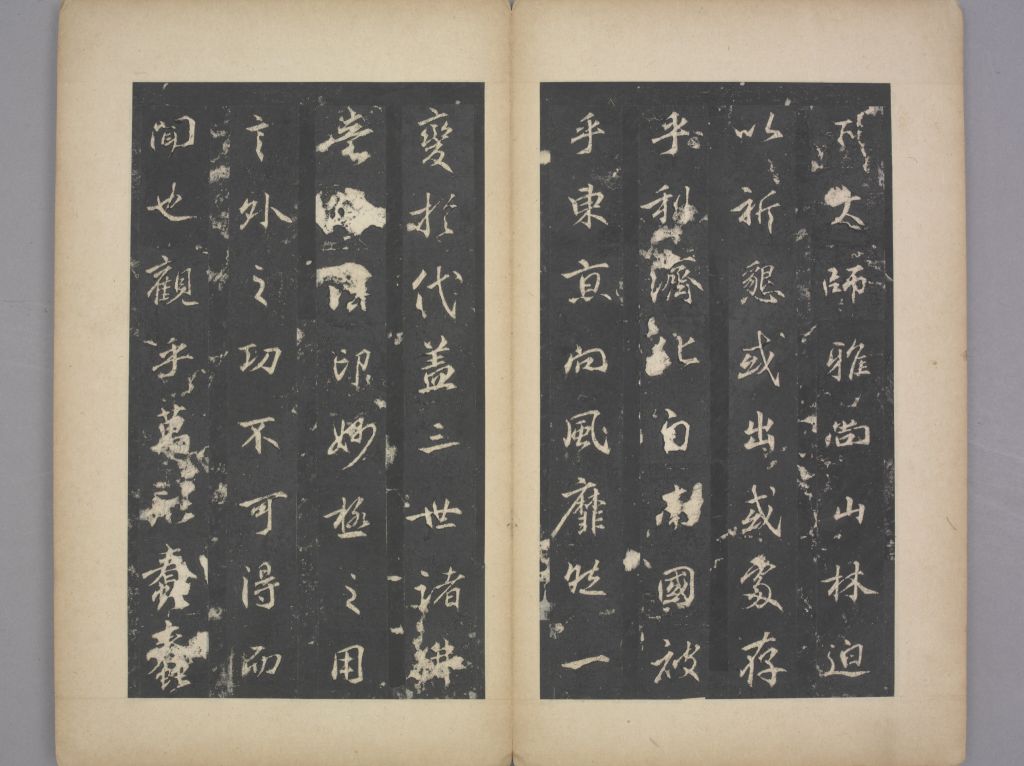 大師雅尚山林迫
以祈懇或出或處存
乎利濟北自南國被
乎東京向風靡然一
變於代蓋三世諸佛
印妙極之用
言外之功不可得而
聞也觀乎萬形蠢蠢